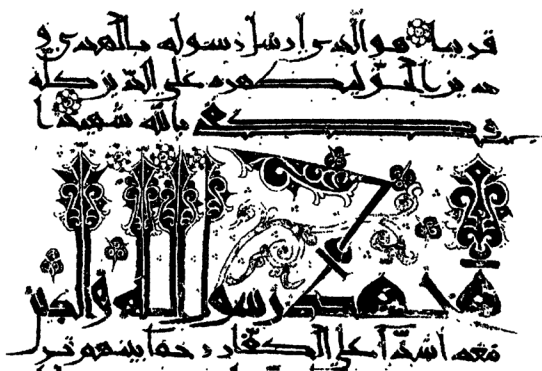 قريبا هو الذي ارسل رسوله بالهدى و
دين الحق ليظهره على الدين كله
وكفى بالله شهيدا
محمد رسول الله والذين
معه اشدا على الكفار رحما بينهم تر